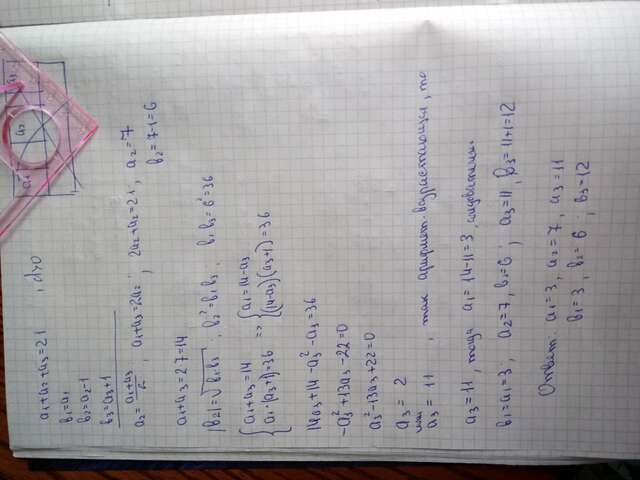 a₁+a₂+a₃=21 , d>0
b₁=a₁
b₂=a₂-1
b₃=a₃+1
a₂=(a₁+a₃)/2 , a₁+a₃=2a₂ ; 2a₂+a₂=21, a₂=7
b₂=7-1=6
a₁+a₃=2·7=14
|b₂|=√(b₁b₃) , b₂²=b₁b₃ , b₁b₃=6²=36
{a₁+a₃=14 => {a₁=14-a₃
{a₁·(a₃+1)=36 {(14-a₃)(a₃+1)=36
14a₃+14-a₃²-a₃=36
-a₃²+13a₃-22=0
a₃²-13a₃+22=0
a₃= 2
или
a₃= 11 , так арифмет. возрастающая, то
a₃=11, тогда a₁=14-11=3, следовательно
b₁=a₁=3, a₂=7, b₂=6 ; a₃=11, b₃=11+1=12
Ответ. a₁=3, a₂=7, a₃=11
b₁=3, b₂=6 , b₃=12
a₁ a₂